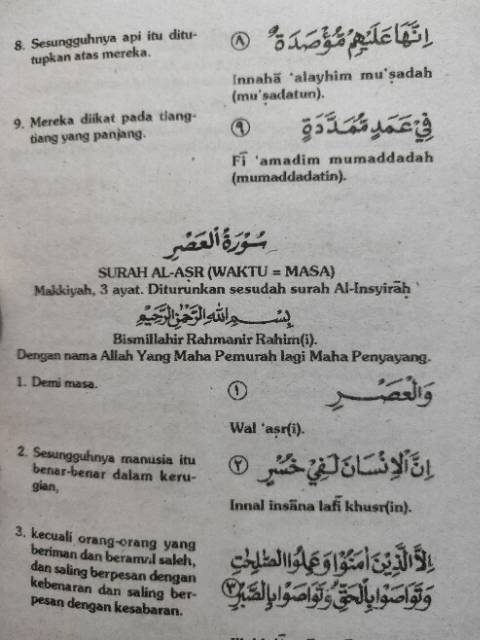 8. Sesungguhnya api itu ditu-
tupkan atas mereka.
إِنَّهَا عَلَيْهِمْ مُؤْصَدَةٌ ﴿٨﴾
Innahā ‘alayhim mu’ṣadah
(mu’ṣadatun).
9. Mereka diikat pada tiang-
tiang yang panjang.
فِيْ عَمَدٍ مُمَدَّدَةٍ ﴿٩﴾
Fī ‘amadim mumaddadah
(mumaddadatin).
سُوْرَةُ الْعَصْرِ
SURAH AL-AṢR (WAKTU = MASA)
Makkiyah, 3 ayat. Diturunkan sesudah surah Al-Insyirāḥ
بِسْمِ اللهِ الرَّحْمٰنِ الرَّحِيْمِ
Bismillahir Rahmanir Rahim(i).
Dengan nama Allah Yang Maha Pemurah lagi Maha Penyayang.
1. Demi masa.
وَالْعَصْرِ ﴿١﴾
Wal ‘aṣr(i).
2. Sesungguhnya manusia itu
benar-benar dalam keru-
gian,
اِنَّ الْاِنْسَانَ لَفِيْ خُسْرٍ ﴿٢﴾
Innal insāna lafī khusr(in).
3. kecuali orang-orang yang
beriman dan beramal saleh,
dan saling berpesan dengan
kebenaran dan saling ber-
pesan dengan kesabaran.
اِلَّا الَّذِيْنَ اٰمَنُوْا وَعَمِلُوا الصّٰلِحٰتِ
وَتَوَاصَوْا بِالْحَقِّ وَتَوَاصَوْا بِالصَّبْرِ ﴿٣﴾